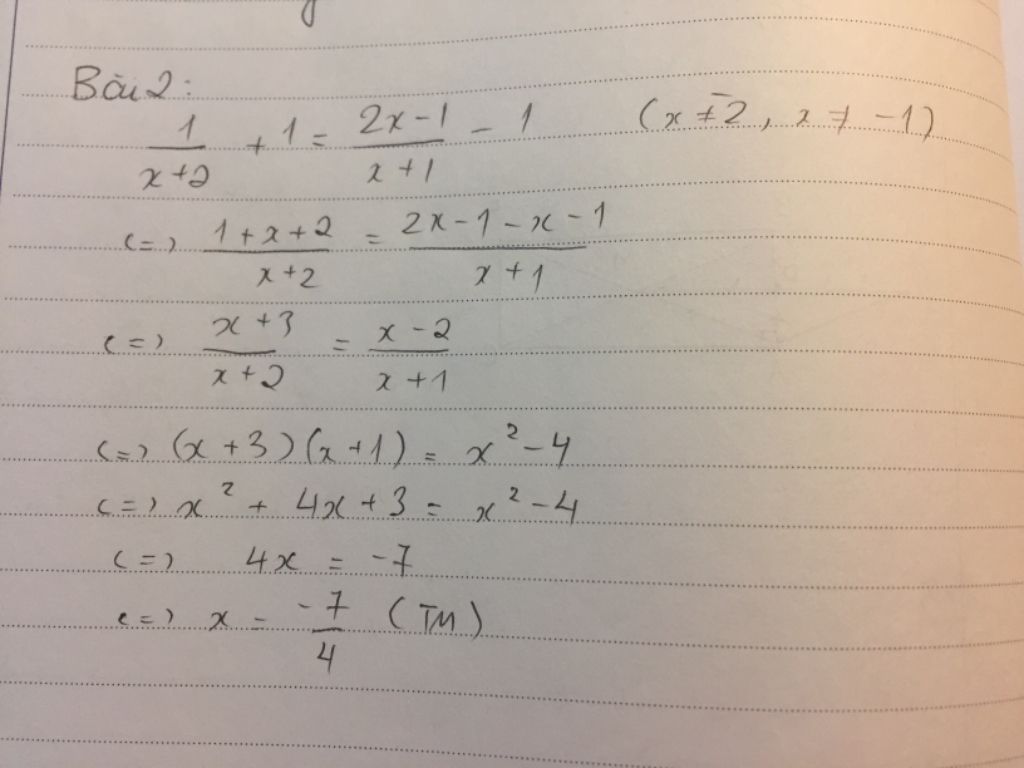 Bài 2:
1/(x+2) + 1 = (2x-1)/(x+1) - 1 (x ≠ -2, x ≠ -1)
<=> (1+x+2)/(x+2) = (2x-1-x-1)/(x+1)
<=> (x+3)/(x+2) = (x-2)/(x+1)
<=> (x+3)(x+1) = x²-4
<=> x² + 4x+3 = x²-4
<=> 4x = -7
<=> x = -7/4 (TM)